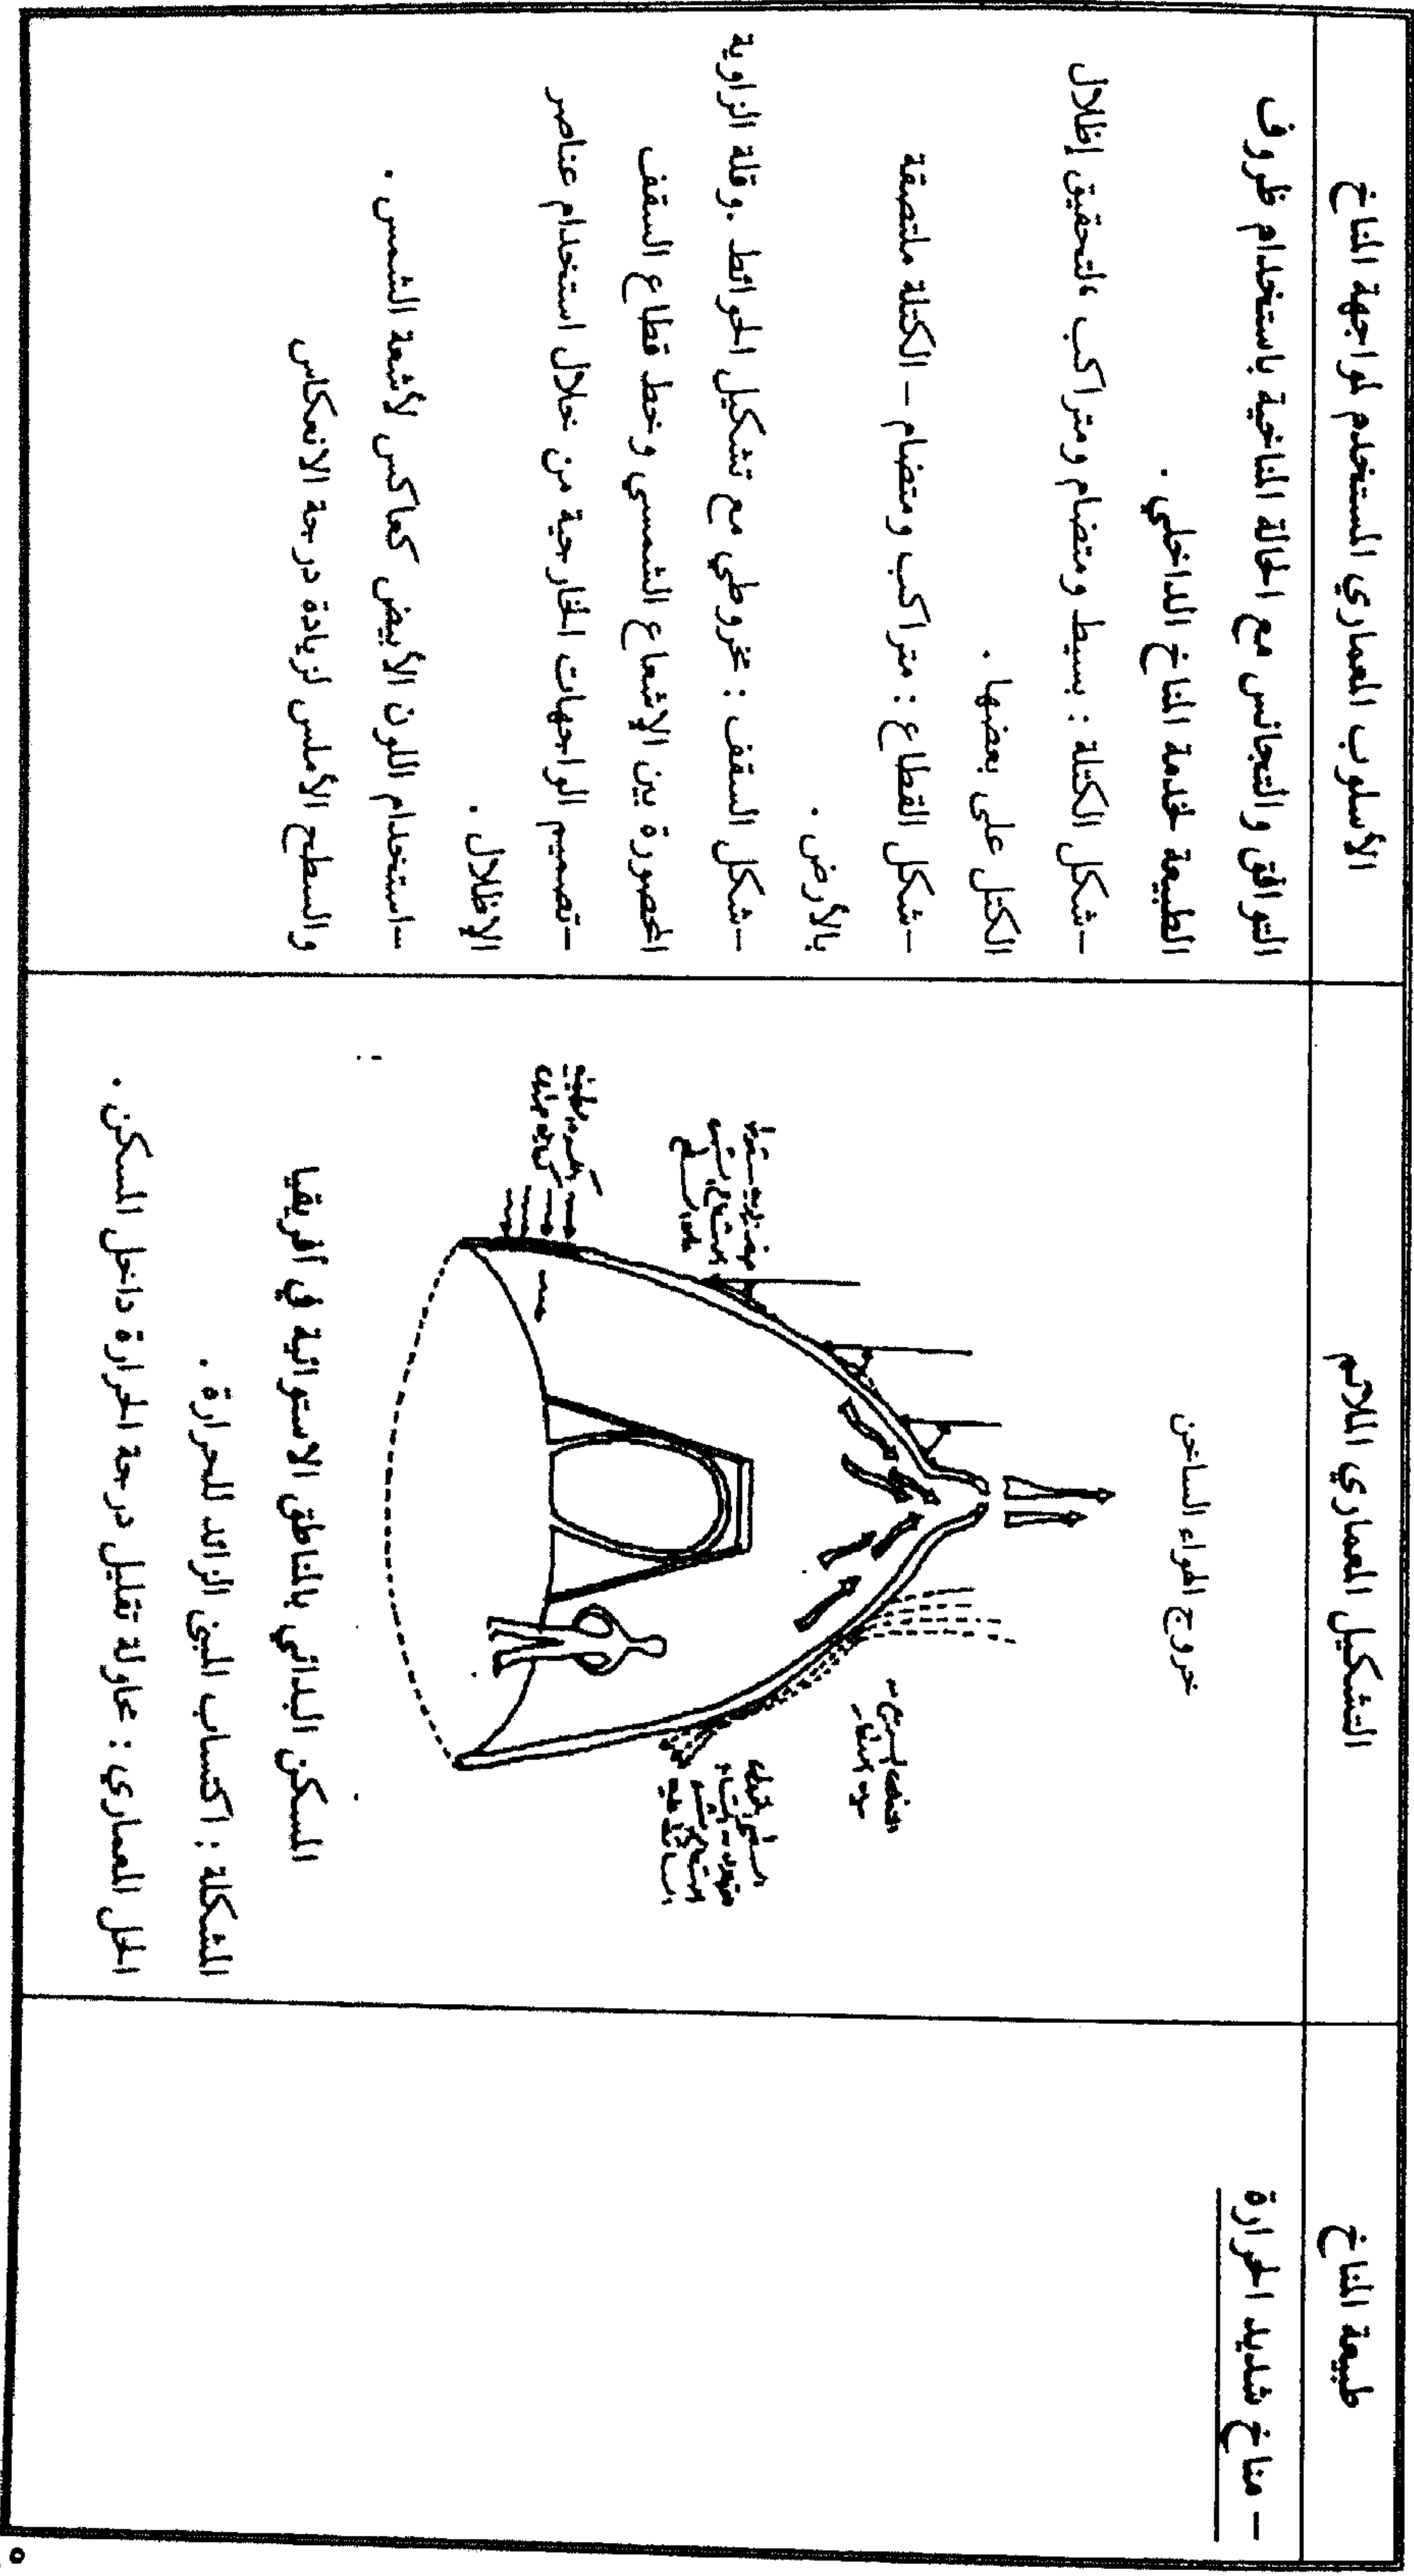 طبيعة المناخ
التشكيل المعماري الملائم
الأسلوب المعماري المستخدم لمواجهة المناخ
– مناخ شديد الحرارة
خروج الهواء الساخن
المسكن البدائي بالمناطق الاستوائية في أفريقيا
المشكلة : اكتساب المبنى الزائد للحرارة .
الحل المعماري : محاولة تقليل درجة الحرارة داخل المسكن .
التوافق والتجانس مع الحالة المناخية باستخدام ظروف
الطبيعة لخدمة المناخ الداخلي .
–شكل الكتلة : بسيط ومتضام ومتراكب ،لتحقيق إظلال
الكتل على بعضها .
–شكل القطاع : متراكب ومتضام – الكتلة ملتصقة
بالأرض .
–شكل السقف : مخروطي مع تشكيل الحوائط .وقلة الزاوية
المحصورة بين الإشعاع الشمسي وخط قطاع السقف
–تصميم الواجهات الخارجية من خلال استخدام عناصر
الإظلال .
–استخدام اللون الأبيض كعاكس لأشعة الشمس .
والسطح الأملس لزيادة درجة الانعكاس